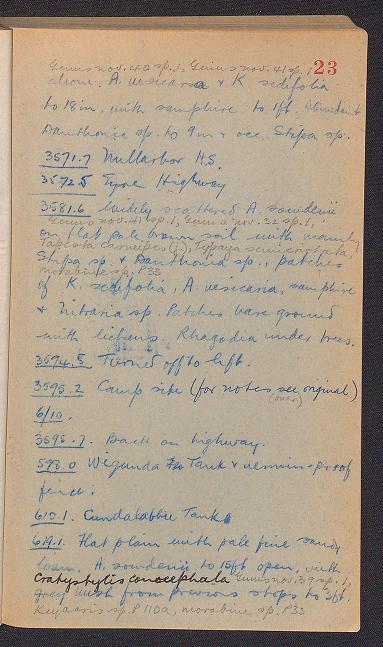 Genus nov. 40 sp. 1, Genus nov. 41 sp. 1
23
above. A. vesicaria & K. sedifolia
to 18 in, with samphire to 1 ft. Abundant
Danthonia sp. to 9 in & occ. Stipa sp.
3571.7 Nullarbor H.S.
3572.5 Eyre Highway
3581.6 Widely scattered A. sowdenii
Genus nov. 41 sp. 1, Genus nov. 32 sp. 1,
on flat pale brown soil with mainly
Tapesta carneipes (j), Typaya semicristata,
Stipa sp. & Danthonia sp., patches
morabine sp. P33
of K. sedifolia, A. vesicaria, samphire
& Nitraria sp. Patches bare ground
with lichens. Rhagodia under trees.
3594.5 Turned off to left.
3595.2 Camp site (for notes see original)
(over)
6/10.
3595.7. Back on highway.
598.0 Wigunda Tank & vermin-proof
fence.
610.1. Cundalabbie Tank
619.1. Flat plain with pale fine sandy
loam. A. sowdenii to 15ft open, with
Cratystylis conocephala Genus nov. 39 sp. 1,
grey bush from previous stops to 3ft.
Keyacris sp. P110a, morabine sp. P33